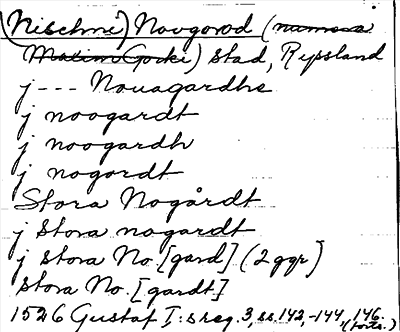 (Nischni) Novgorod (numera
Maxim Gorki) stad, Ryssland
j --- Nouagardhe
j noogardt
j noogardh
j nogordt
Stora Nogårdt
j stora nogardt
j stora No.[gard] (2 ggr)
stora No.[gardt]
1526 Gustaf I:s reg. 3, ss. 142,-144, 146. (forts.)